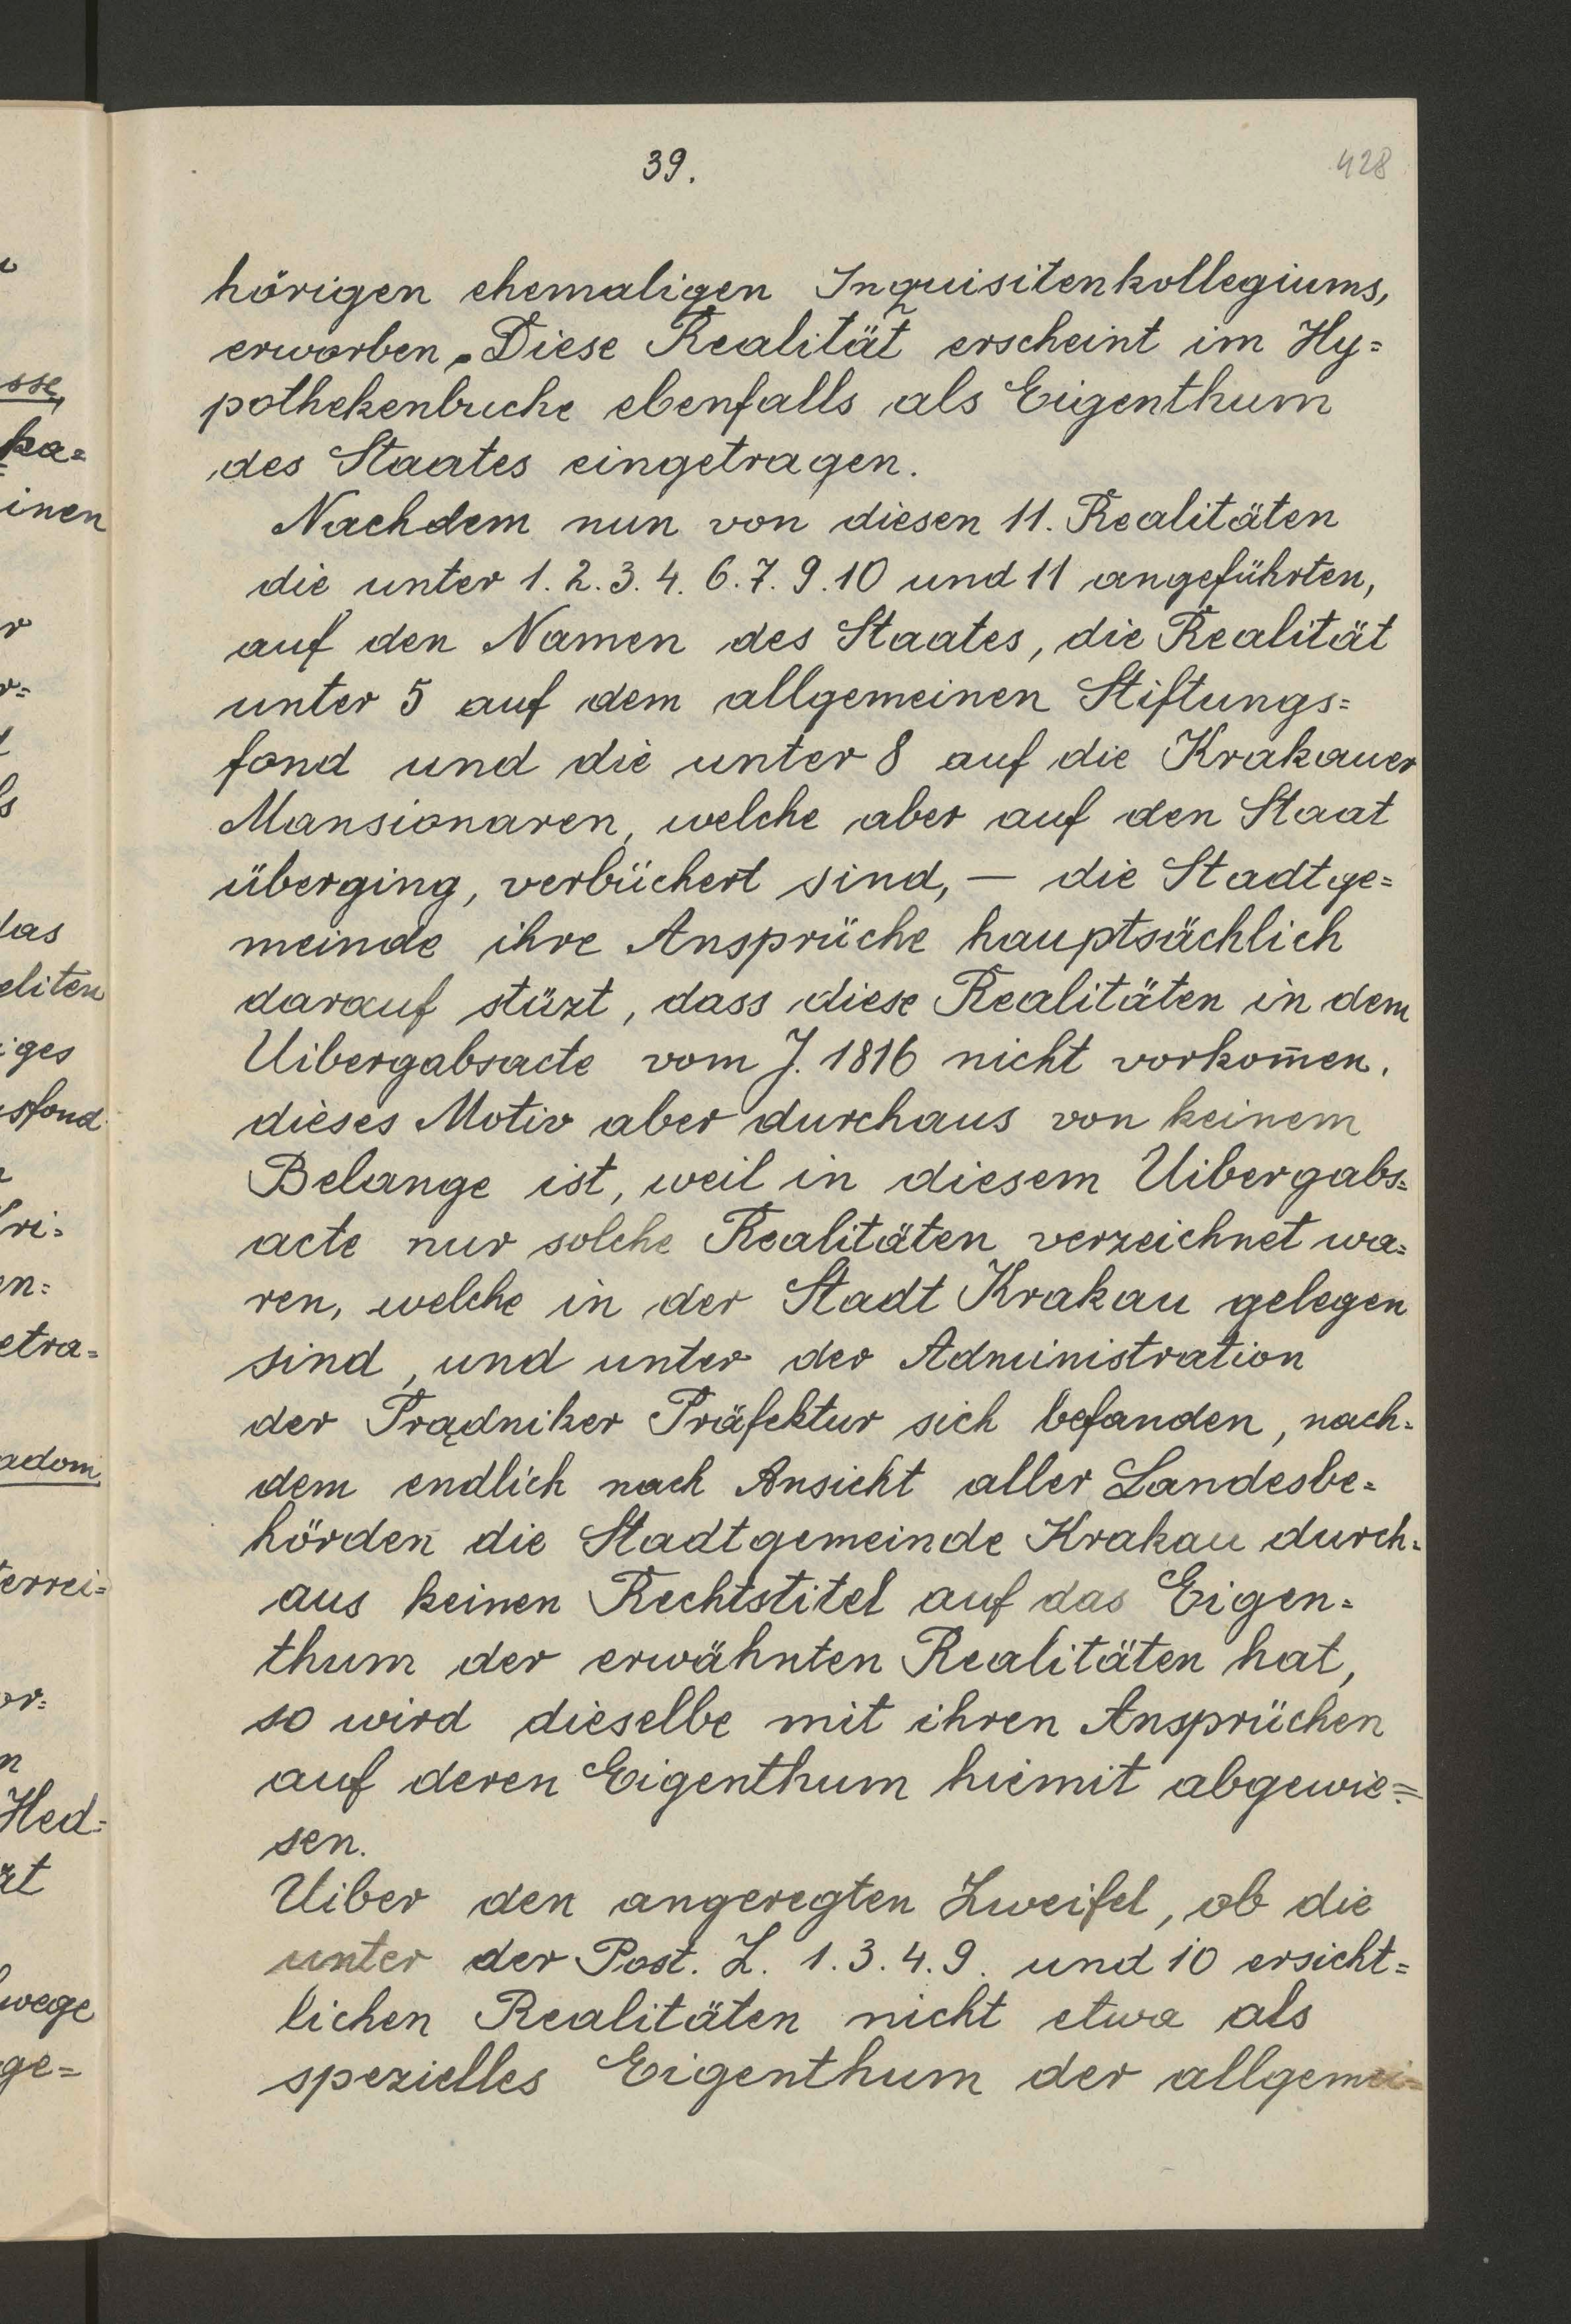 39.
428
hörigen ehemaligen Inquisitenkollegiums,
erworben. Diese Realität erscheint im Hy=
pothekenbuche ebenfalls als Eigenthum
des Staates eingetragen.
Nachdem nun von diesen 11. Realitäten
die unter 1. 2. 3. 4. 6. 7. 9. 10 und 11 angeführten,
auf den Namen des Staates, die Realität
unter 5 auf dem allgemeinen Stiftungs=
fond und die unter 8 auf die Krakauer
Mansionaren, welche aber auf den Staat
überging, verbüchert sind, — die Stadtge=
meinde ihre Ansprüche hauptsächlich
darauf stüzt, dass diese Realitäten in dem
Uibergabsacte vom J. 1816 nicht vorkom̄en.
dieses Motiv aber durchaus von keinem
Belange ist, weil in diesem Uibergabs=
acte nur solche Realitäten verzeichnet wa=
ren, welche in der Stadt Krakau gelegen
sind, und unter der Administration
der Prądniker Präfektur sich befanden, nach=
dem endlich nach Ansicht aller Landesbe=
hörden die Stadtgemeinde Krakau durch=
aus keinen Rechtstitel auf das Eigen=
thum der erwähnten Realitäten hat,
so wird dieselbe mit ihren Ansprüchen
auf deren Eigenthum hiemit abgewie=
sen.
Uiber den angeregten Zweifel, ob die
unter der Post. Z. 1. 3. 4. 9. und 10 ersicht=
lichen Realitäten nicht etwa als
spezielles Eigenthum der allgemei=